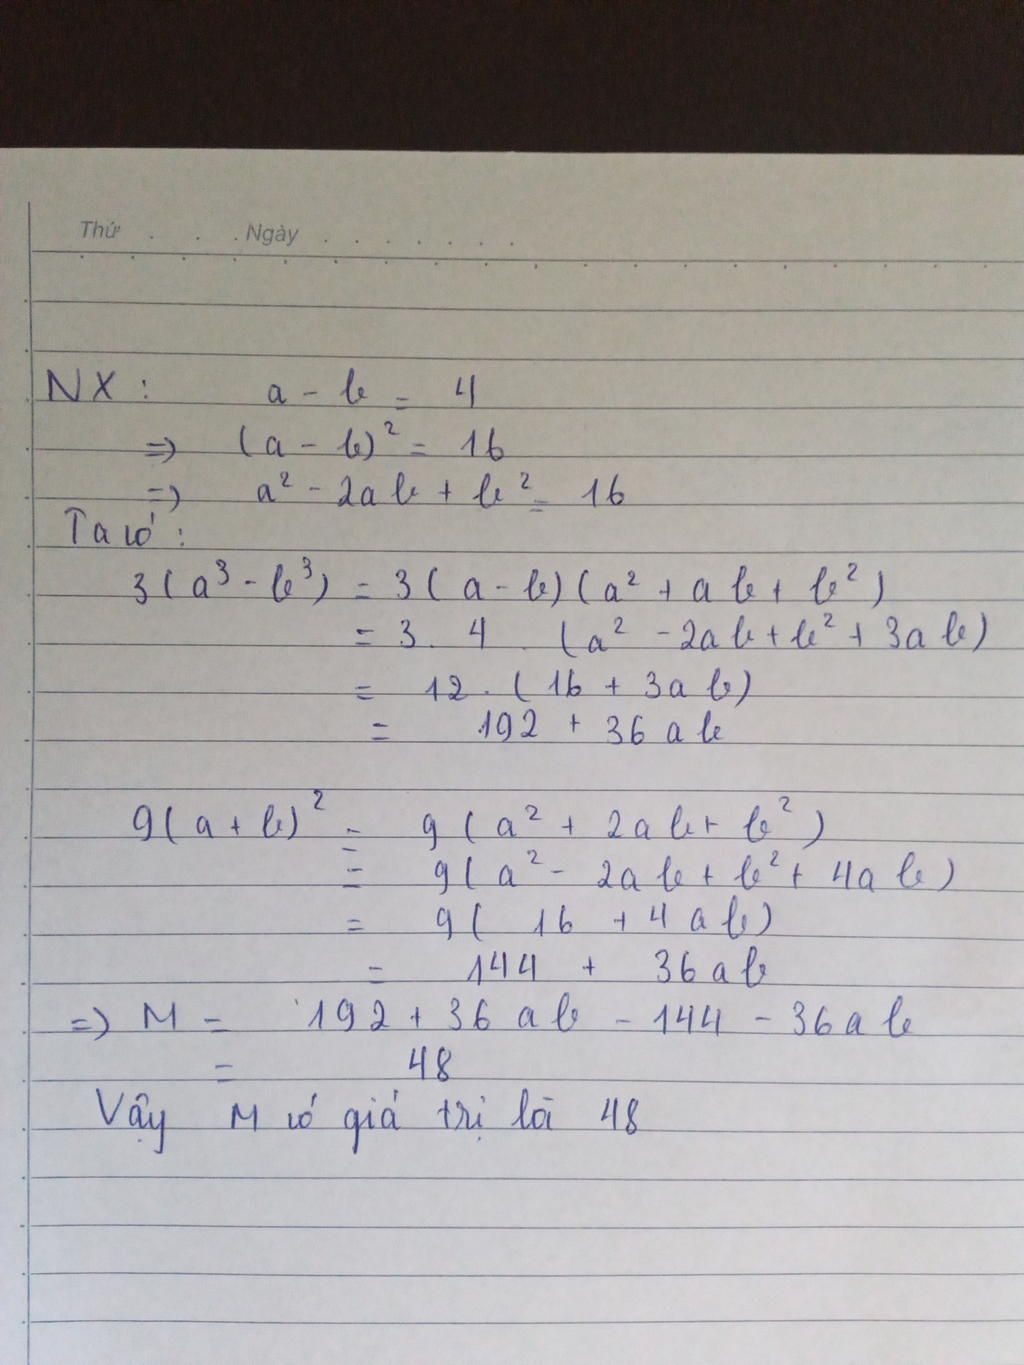 Thứ . . . Ngày . . . . . . .
NX : a - b = 4
=> (a - b)² = 16
=> a² - 2ab + b² = 16
Ta có :
3(a³ - b³) = 3(a - b)(a² + ab + b²)
= 3. 4 . (a² - 2ab + b² + 3ab)
= 12. (16 + 3ab)
= 192 + 36ab
9(a + b)² = 9(a² + 2ab + b²)
= 9(a² - 2ab + b² + 4ab)
= 9( 16 + 4ab)
= 144 + 36ab
=> M = 192 + 36ab - 144 - 36ab
= 48
Vậy M có giá trị là 48